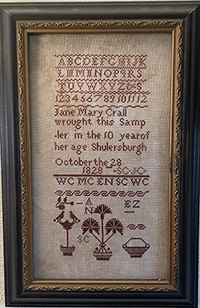 ABCDEFGHIJK
LMMNOPQRS
TUVWXYZ
1234567891011 12
Jane Mary Crall
wrought this Samp
ler in the 10 year of
her age Shulersburgh
October the 28
1828 SC JC
WC MC EN SC WC
AN EZ
SC